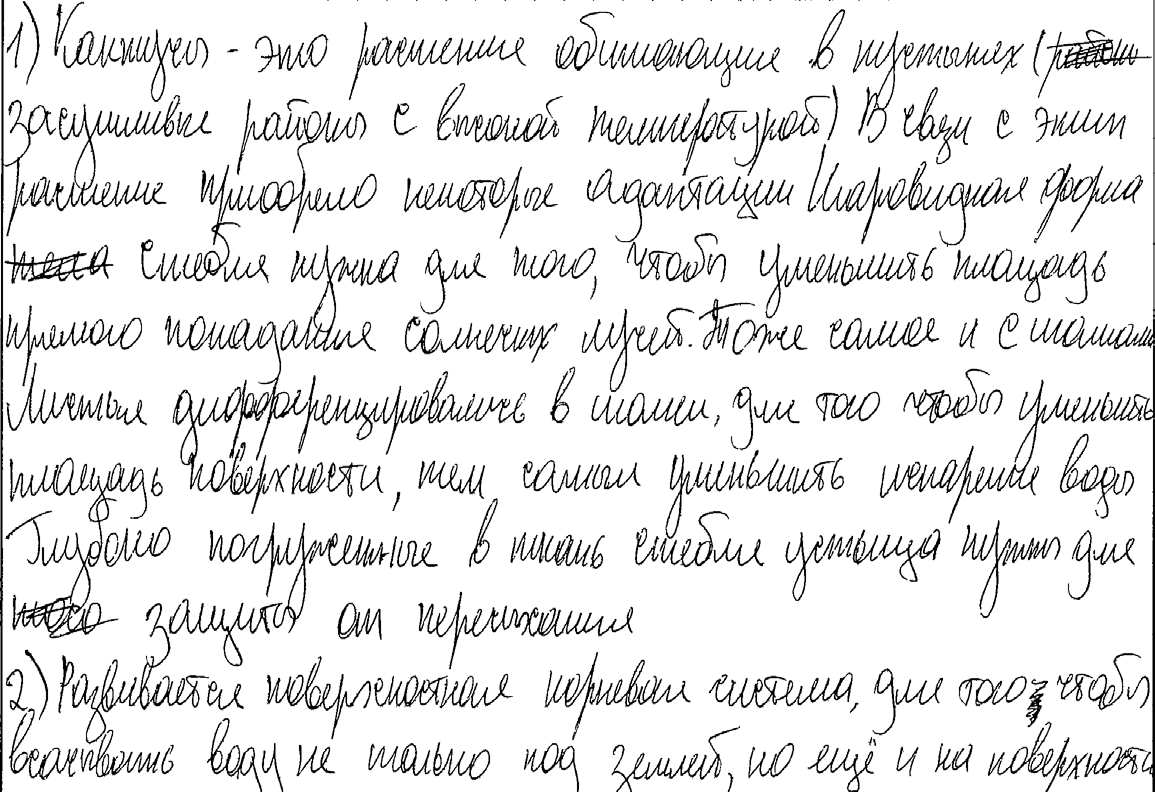 1) Кактусы - это растение обитающие в пустынях (
засушливые районы с высокой температурой) В связи с этим
растение приобрело некоторые адаптации Шаровидная форма
стебля нужна для того, чтобы уменьшить площадь
прямого попадания солнечных лучей. Тоже самое и с шипами
Листья дифференцировались в шипы, для того чтобы уменьшить
площадь поверхности, тем самым уменьшить испарение воды
Глубоко погруженные в ткань стебля устьица нужны для
защиты от пересыхания
2) Развивается поверхностная корневая система, для того чтобы
всасывать воду не только под землей, но ещё и на поверхности